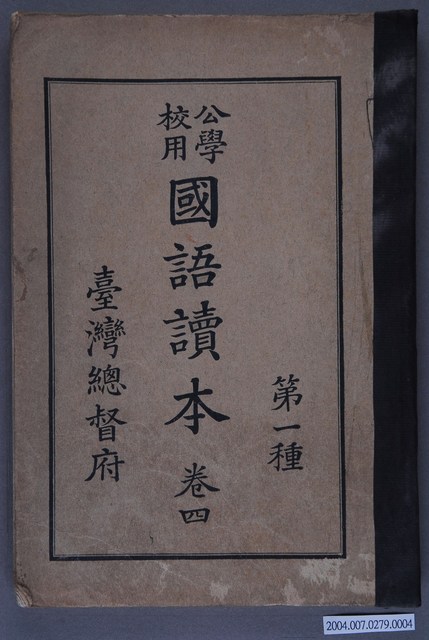 公學校用
國語讀本 卷四
第一種
臺灣總督府
2004.007.0279.0004